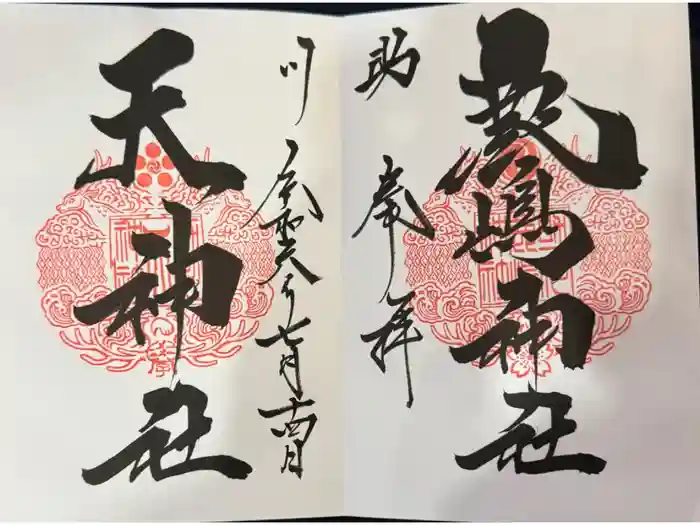 嚴嶋神社
助 奉拝
川 令和六年七月十四日
天神社